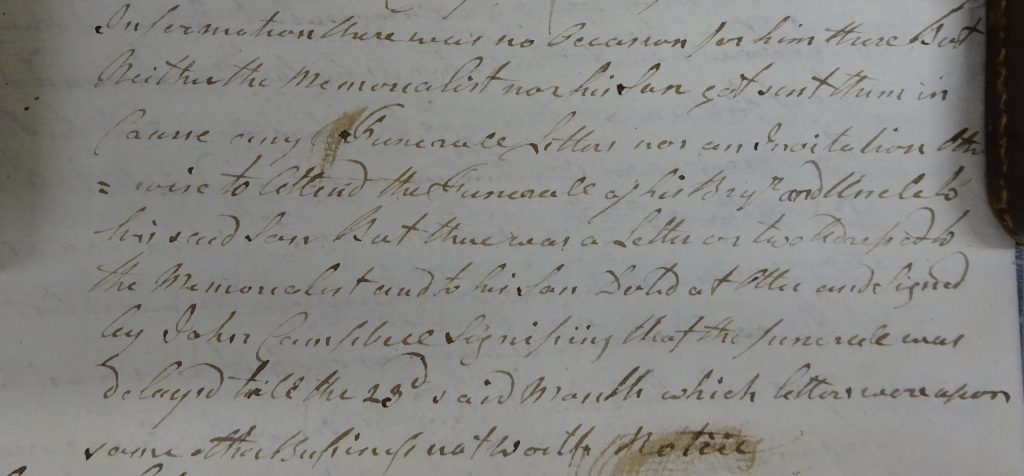 Information there was no Occasion for him there But
Neither the Memorialist nor his Son got sent them in
Course any Funerall Letters nor an Invitation Othe
= wise to Attend the Funerall of his Bryr and Uncle to
his said Son But there was a Letter or two Adressed to
the Memorialist and to his Son Dated at Otter and Signed
by John Campbell Signifiing that the funerall was
delayed till the 23d said Month which letters were upon
some other Business not worth Notice